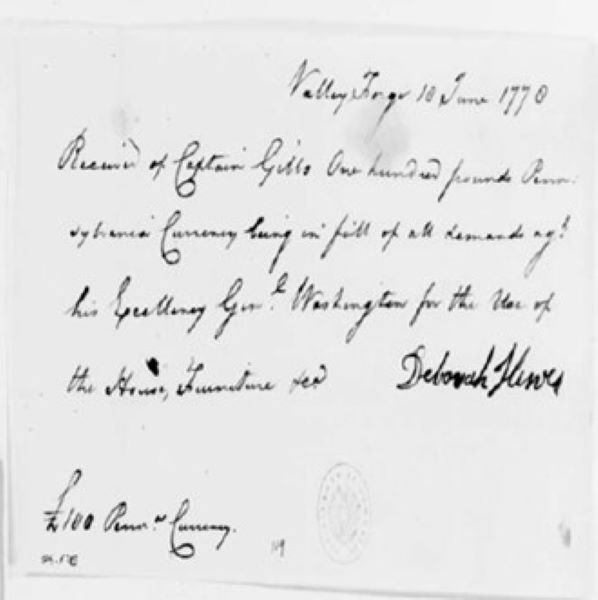 Valley Forge 10 June 1778
Received of Captain Gibbs One hundred pounds Penn:
sylvania Currency being in full of all demands agt
his Excellency Genl. Washington for the Use of
the House, Furniture &ca
Deborah Hewes
£100 Penna. Currency.